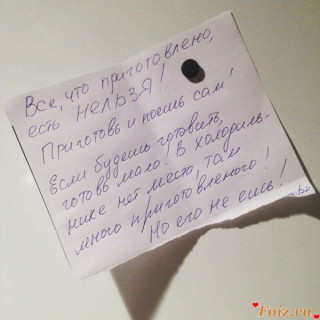 Все, что приготовлено,
есть НЕЛЬЗЯ!
Приготовь и поешь сам!
Если будешь готовить,
готовь мало! В холодиль-
нике нет места, там
много приготовленого!
Но его не ешь!
Foiz.ru